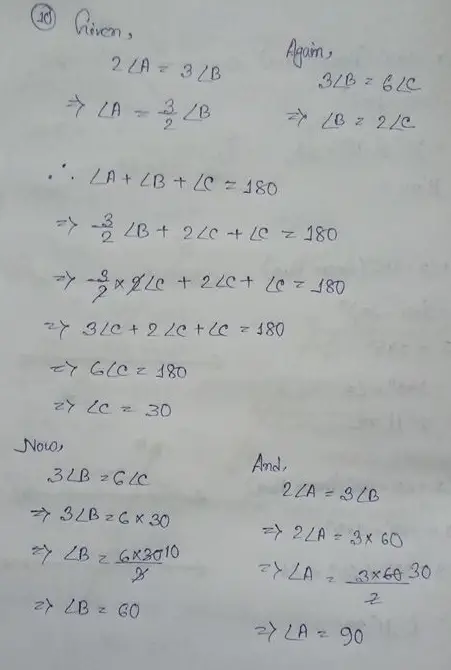 10
Given,
2∠A = 3∠B
=> ∠A = 3/2 ∠B
Again,
3∠B = 6∠C
=> ∠B = 2∠C
∴ ∠A + ∠B + ∠C = 180
=> 3/2 ∠B + 2∠C + ∠C = 180
=> 3/2 × 2∠C + 2∠C + ∠C = 180
=> 3∠C + 2∠C + ∠C = 180
=> 6∠C = 180
=> ∠C = 30
Now,
3∠B = 6∠C
=> 3∠B = 6 × 30
=> ∠B = 6×30 10/3
=> ∠B = 60
And,
2∠A = 3∠B
=> 2∠A = 3 × 60
=> ∠A = 3×60 30/2
=> ∠A = 90